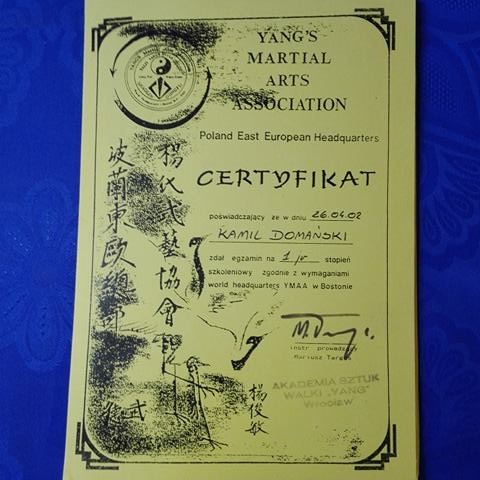 YANG'S
MARTIAL
ARTS
ASSOCIATION
Poland East European Headquarters
CERTYFIKAT
poświadczający że w dniu 26.04.02
KAMIL DOMAŃSKI
zdał egzamin na 1 stopień
szkoleniowy zgodnie z wymaganiami
world headquarters YMAA w Bostonie
instr prowadzący
Mariusz
AKADEMIA SZTUK
WALKI "YANG"
Wrocław
楊氏武藝協會
波蘭東歐總部
武
楊俊敏